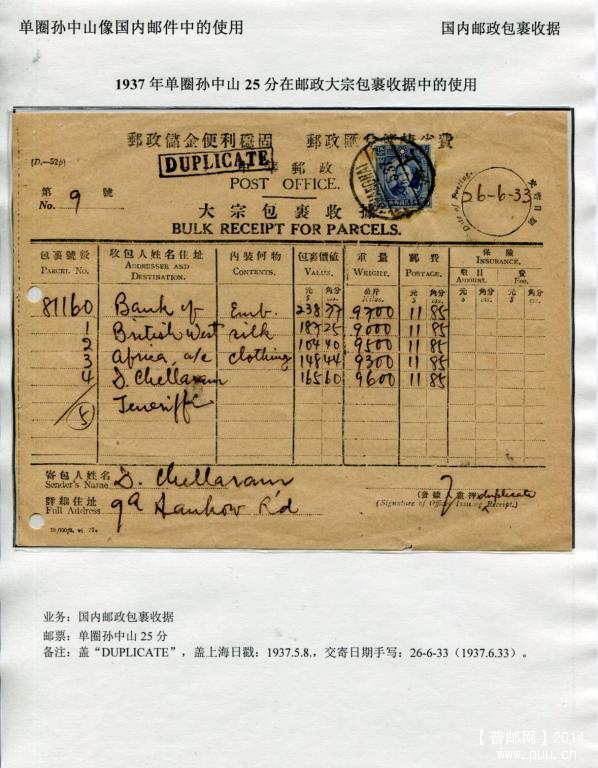 单圈孙中山像国内邮件中的使用 国内邮政包裹收据
1937 年单圈孙中山 25 分在邮政大宗包裹收据中的使用
郵政儲金便利穩固 郵政匯兌
(D.—52p)
DUPLICATE
中華郵政
POST OFFICE.
第 9 號
No.
Date of Posting.
26-6-33
大宗包裹收據
BULK RECEIPT FOR PARCELS.
包裹號數 收包人姓名住址 內裝何物 包裹價值 重量 郵費 保險
PARCEL No. ADDRESSEE AND DESTINATION. CONTENTS. VALUE. WEIGHT. POSTAGE. INSURANCE.
數目 費
Amount. Fee.
元 角分 公斤 元 角分 元 角分 元 角分
$ cts. Kilos. $ cts. $ cts. $ cts.
81160 Bank of Emb. 238 77 9700 11 85
1 British West silk 187 25 9000 11 85
2 Africa, a/c clothing 104 40 9500 11 85
3 D. Chellaram 148 44 9300 11 85
4 Teneriffe 165 60 9600 11 85
5
寄包人姓名 D. Chellaram
Sender's Name
詳細住址 9a Hankow R'd
Full Address
duplicate
(Signature of Officer Issuing Receipt.)
业务：国内邮政包裹收据
邮票：单圈孙中山 25 分
备注：盖“DUPLICATE”，盖上海日戳：1937.5.8.，交寄日期手写：26-6-33（1937.6.33）。
【普邮网】2014
www.puu.cn